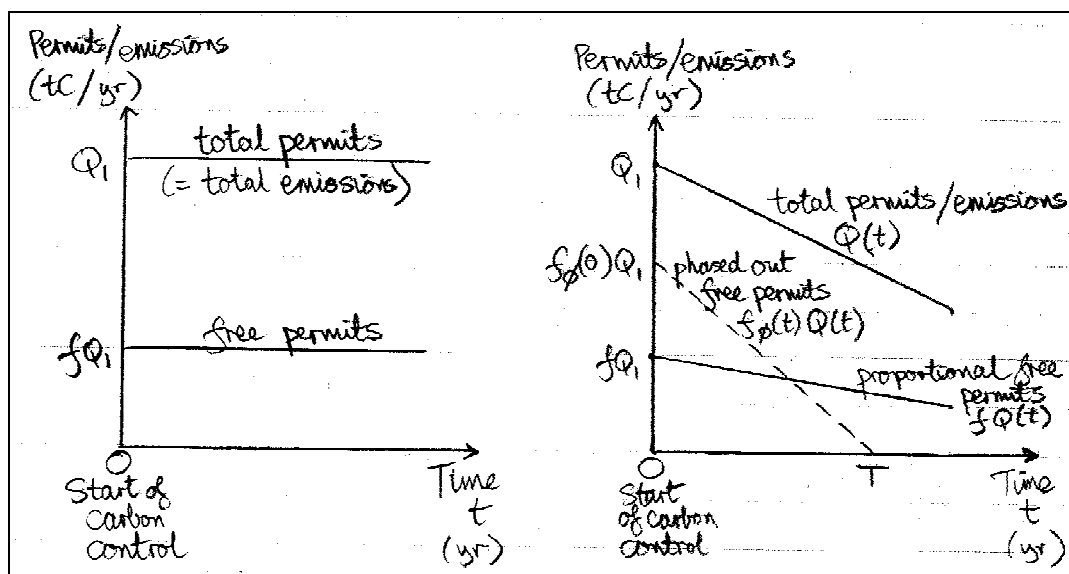 Permits/emissions
(tC/yr)
Q₁
total permits
(= total emissions)
fQ₁
free permits
O
Start of
carbon
control
Time
t
(yr)
Permits/emissions
(tC/yr)
Q₁
total permits/emissions
Q(t)
fø(0)Q₁
phased out
free permits
fø(t)Q(t)
fQ₁
proportional free
permits
fQ(t)
O
Start
of carbon
control
T
Time
t
(yr)